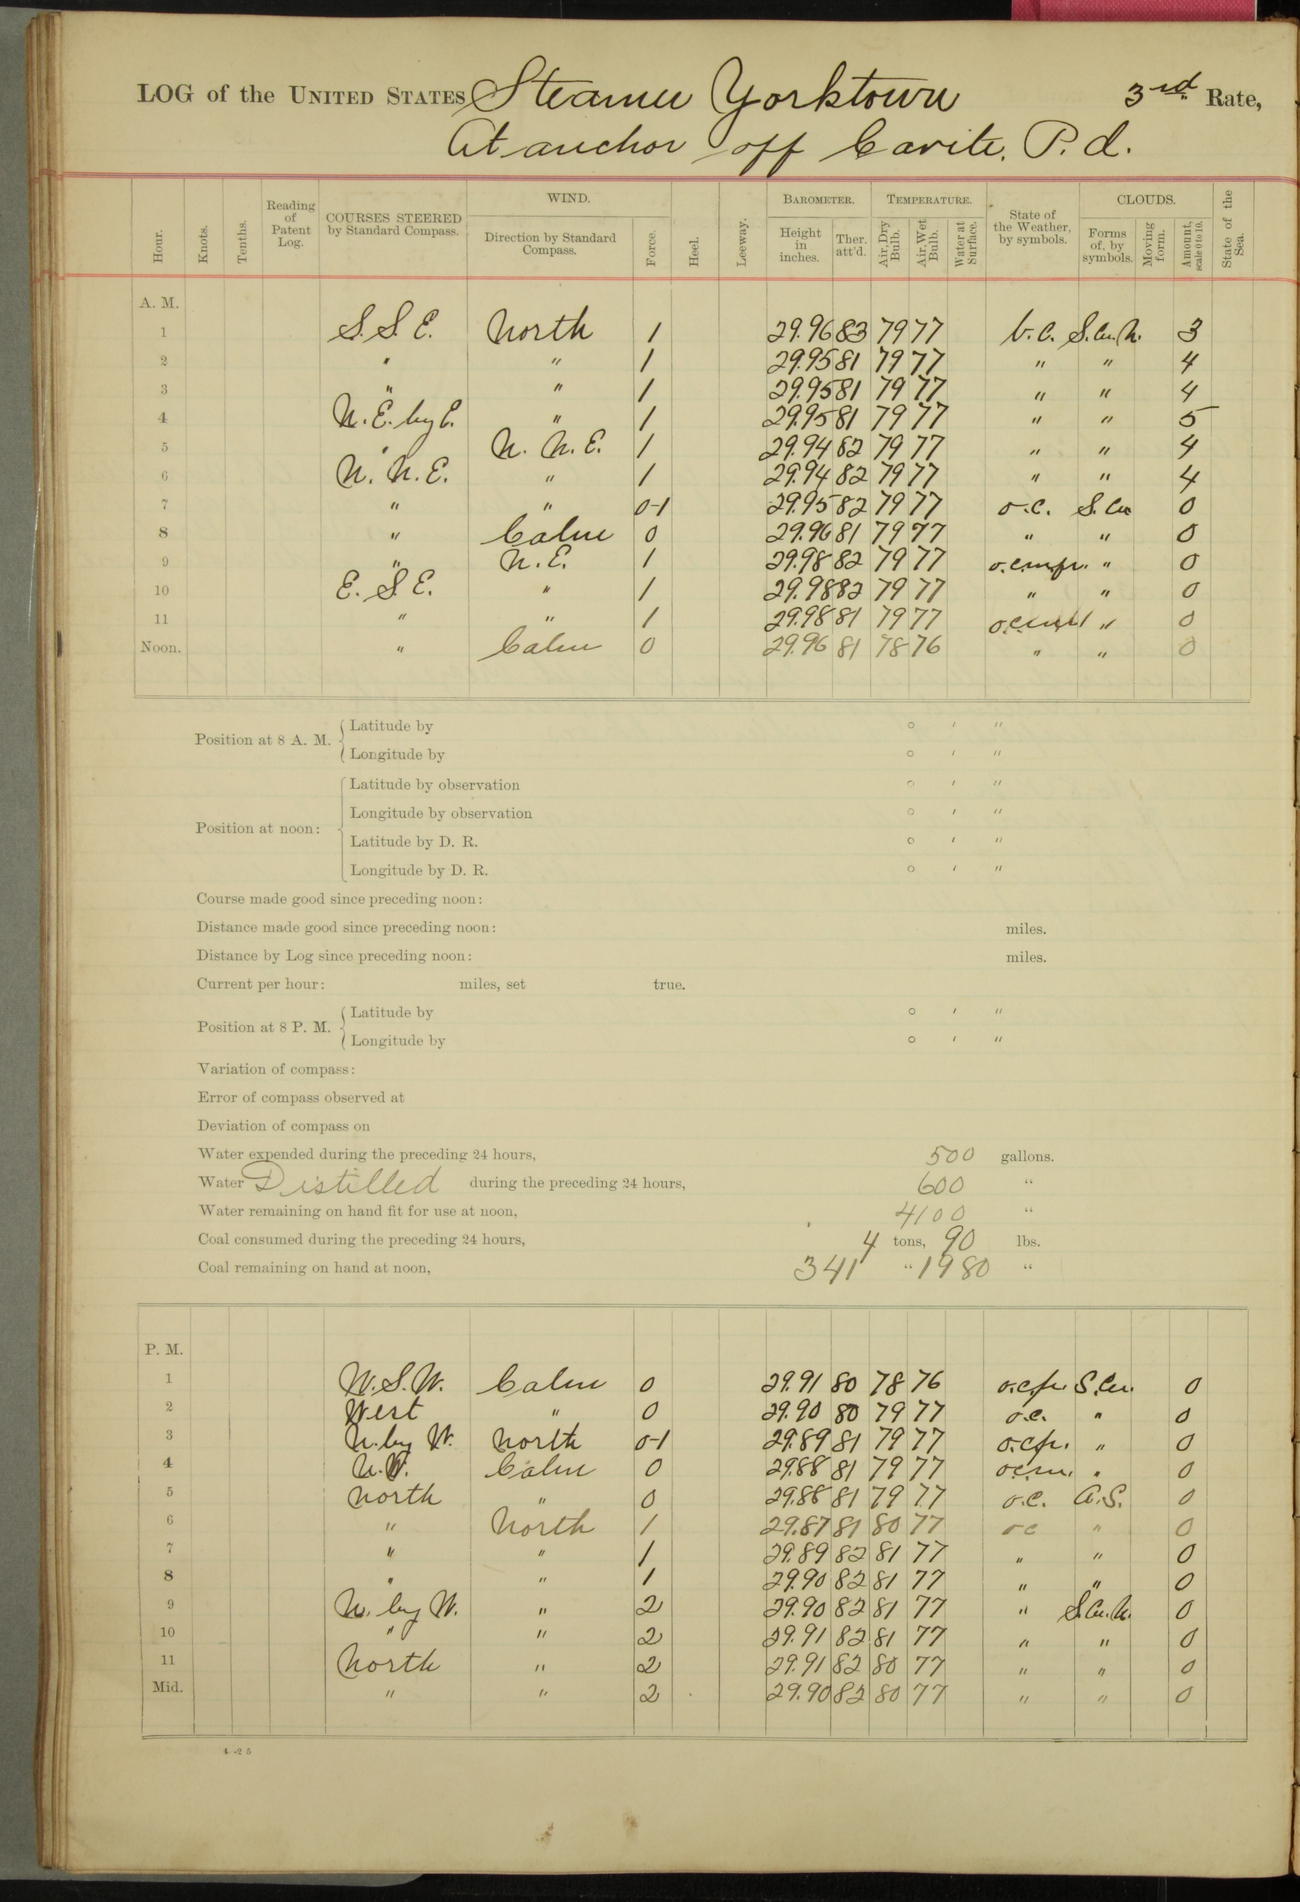 LOG of the UNITED STATES Steamer Yorktown 3rd Rate,
At anchor off Cavite, P.I.
Hour. Knots. Tenths. Reading of Patent Log. COURSES STEERED by Standard Compass. WIND. Direction by Standard Compass. Force. Heel. Leeway. BAROMETER. Height in inches. Ther. att'd. TEMPERATURE. Air, Dry Bulb. Air, Wet Bulb. Water at Surface. State of the Weather, by symbols. CLOUDS. Forms of, by symbols. Moving form. Amount, scale 0 to 10. State of the Sea.
A. M.
1 S.S.E. North 1 29.96 83 79 77 b.c. S.Cu.N. 3
2 " " 1 29.95 81 79 77 " " 4
3 " " 1 29.95 81 79 77 " " 4
4 N.E. by E. " 1 29.95 81 79 77 " " 5
5 " N.N.E. 1 29.94 82 79 77 " " 4
6 N.N.E. " 1 29.94 82 79 77 " " 4
7 " " 0-1 29.95 82 79 77 o.c. S.Cu 0
8 " Calm 0 29.96 81 79 77 " " 0
9 " N.E. 1 29.98 82 79 77 o.c.m.p.r. " 0
10 E.S.E. " 1 29.98 82 79 77 " " 0
11 " " 1 29.98 81 79 77 " 0
Noon. " Calm 0 29.96 81 78 76 " " 0
Position at 8 A. M. Latitude by ° ′ ″
Longitude by ° ′ ″
Position at noon: Latitude by observation ° ′ ″
Longitude by observation ° ′ ″
Latitude by D. R. ° ′ ″
Longitude by D. R. ° ′ ″
Course made good since preceding noon:
Distance made good since preceding noon: miles.
Distance by Log since preceding noon: miles.
Current per hour: miles, set true.
Position at 8 P. M. Latitude by ° ′ ″
Longitude by ° ′ ″
Variation of compass:
Error of compass observed at
Deviation of compass on
Water expended during the preceding 24 hours, 500 gallons.
Water Distilled during the preceding 24 hours, 600 "
Water remaining on hand fit for use at noon, 4100 "
Coal consumed during the preceding 24 hours, 4 tons, 90 lbs.
Coal remaining on hand at noon, 341 " 1980 "
P. M.
1 W.S.W. Calm 0 29.91 80 78 76 S.Cu. 0
2 West " 0 29.90 80 79 77 o.c. " 0
3 N. by W. North 0-1 29.89 81 79 77 " 0
4 N.W. Calm 0 29.88 81 79 77 o.c.m. " 0
5 North " 0 29.88 81 79 77 o.c. A.S. 0
6 " North 1 29.87 81 80 77 o c " 0
7 " " 1 29.89 82 81 77 " " 0
8 " " 1 29.90 82 81 77 " " 0
9 N. by W. " 2 29.90 82 81 77 " S.Cu.N. 0
10 " " 2 29.91 82 81 77 " " 0
11 North " 2 29.91 82 80 77 " " 0
Mid. " " 2 29.90 82 80 77 " " 0
4-25